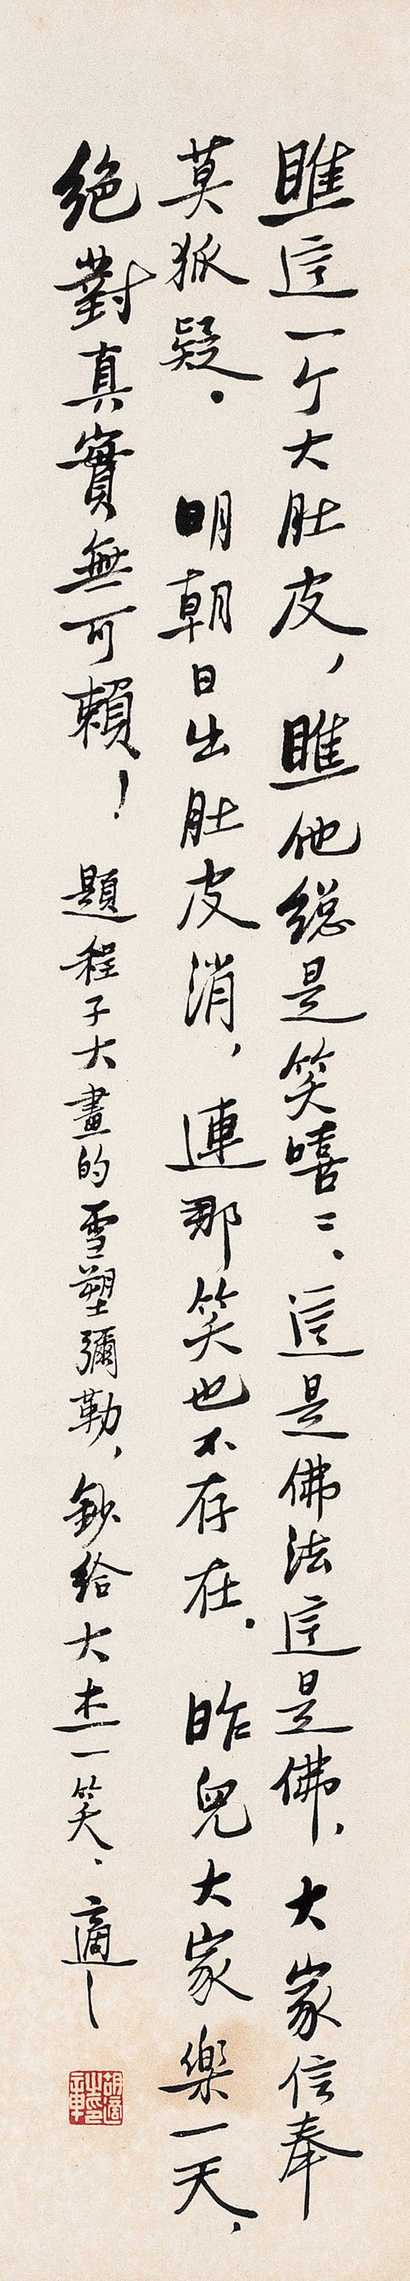 瞧這一个大肚皮，瞧他總是笑嘻〻。這是佛法這是佛，大家信奉
莫狐疑。　明朝日出肚皮消，連那笑也不存在。昨兒大家樂一天，
絶對真實無可賴！　題程子大畫的雪塑彌勒，鈔給大杰一笑。適之
胡適之印章